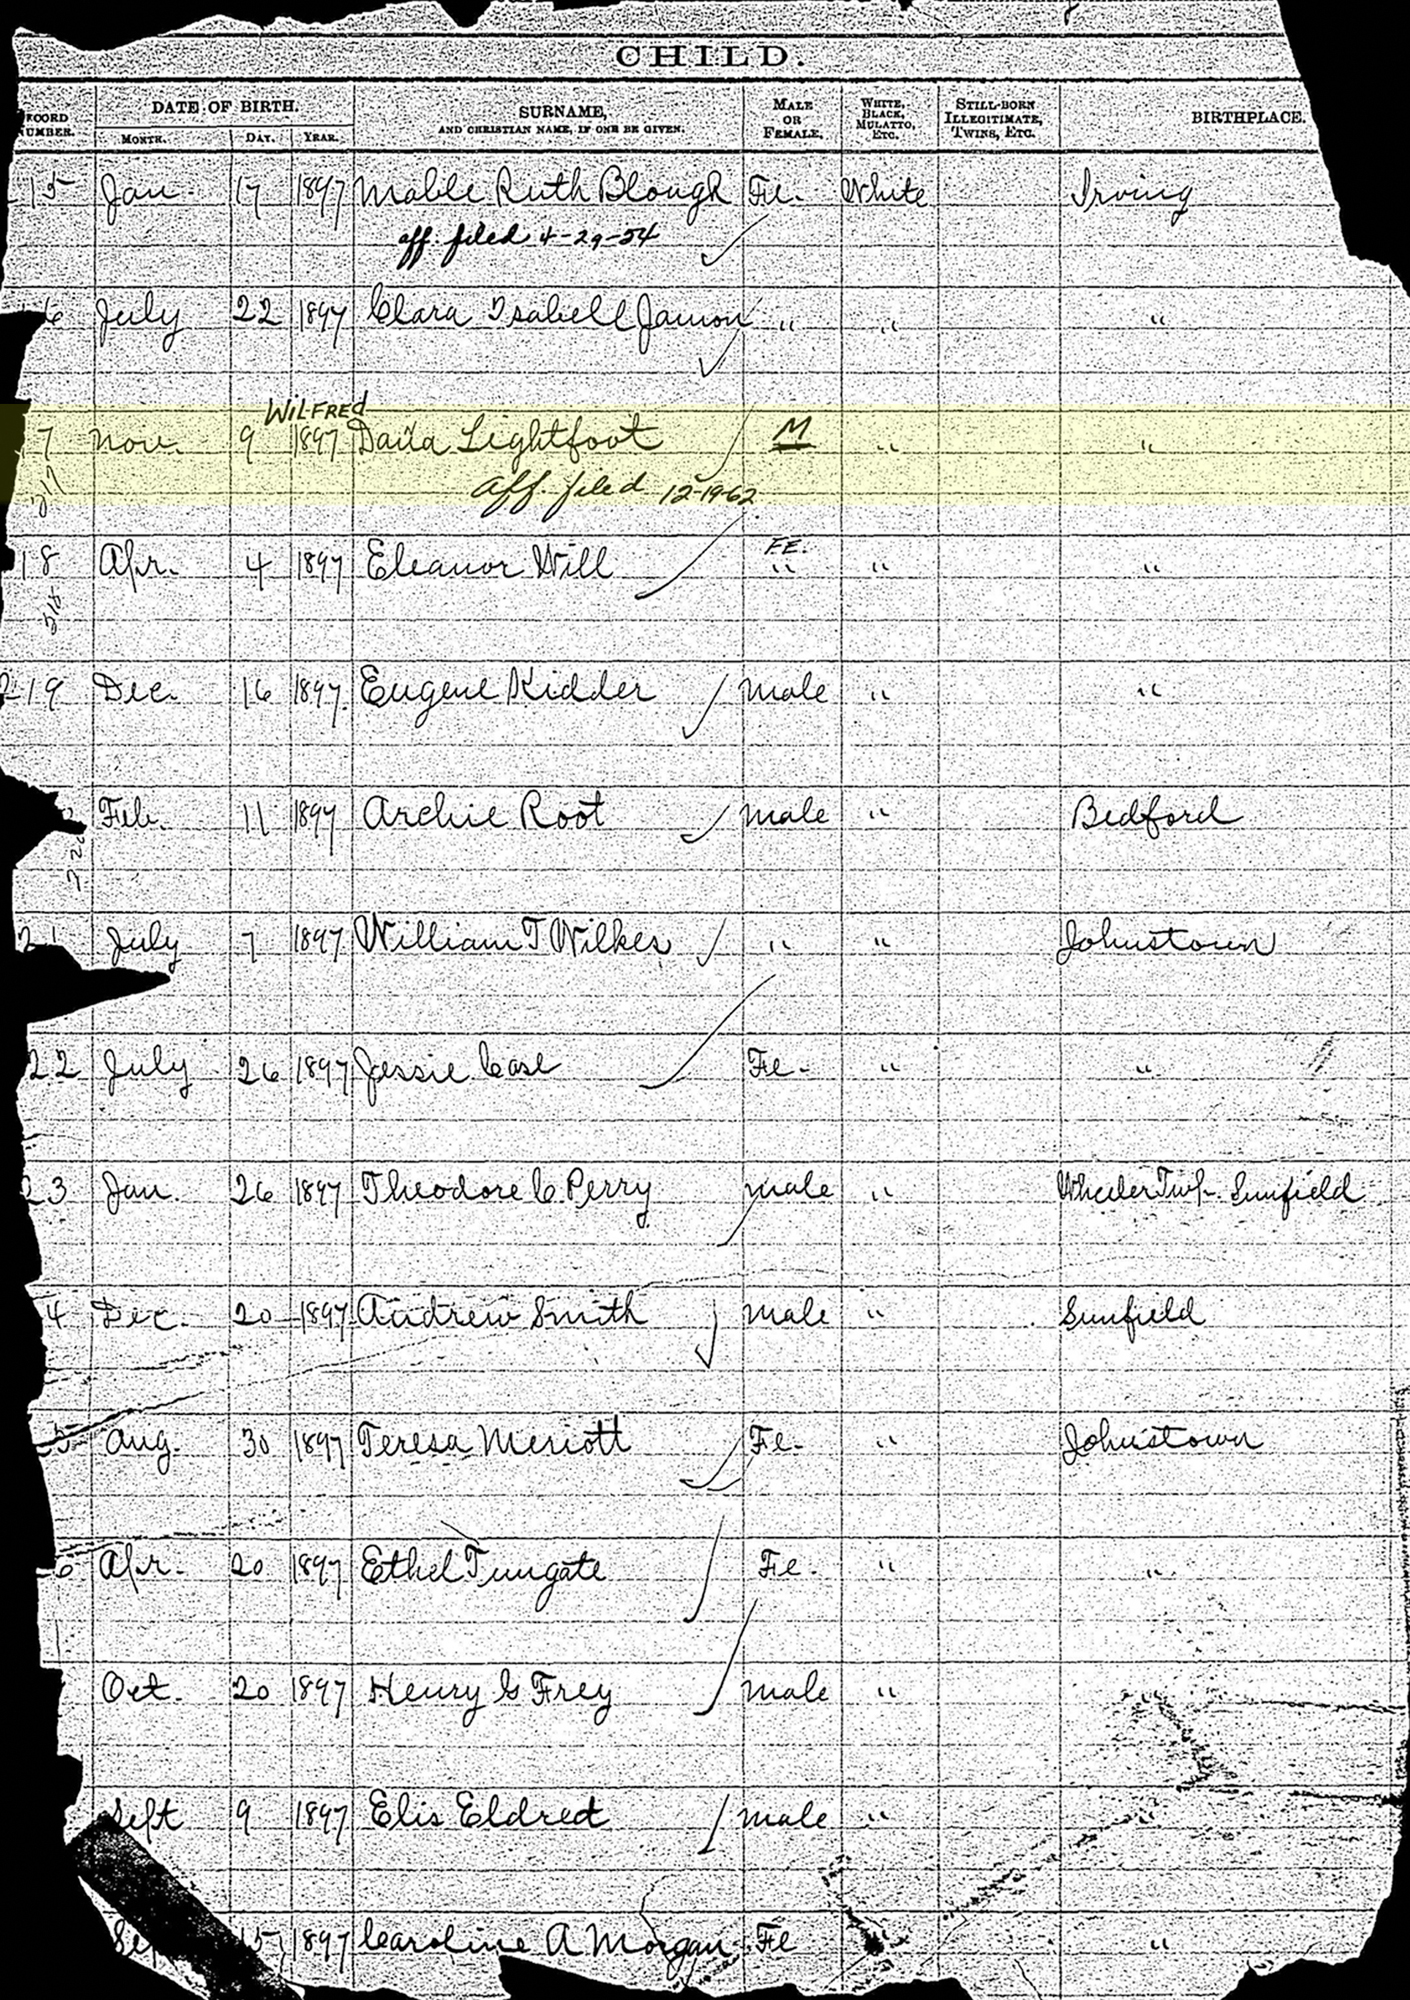 CHILD.
DATE OF BIRTH.
MONTH. DAY. YEAR.
SURNAME,
AND CHRISTIAN NAME, IF ONE BE GIVEN.
MALE
OR
FEMALE.
WHITE,
BLACK,
MULATTO,
ETC.
STILL-BORN
ILLEGITIMATE,
TWINS, ETC.
BIRTHPLACE.
15 Jan. 17 1897 Mable Ruth Blough Fe. White Irving
aff. filed 4-29-54
6 July 22 1897 Clara Isabell " " "
WILFRED
17 Nov. 9 1897 Lightfoot M " "
aff. filed 12-19-62
217
FE.
18 Apr. 4 1897 Eleanor Will " " "
218
219 Dec. 16 1897. Eugene Kidder Male " "
Feb. 11 1897 Archie Root Male " Bedford
220
21 July 7 1897 William T Wilkes " " Johnstown
22 July 26 1897 Jessie Case Fe. " "
23 Jan. 26 1897 Theodore C. Perry Male " Wheeler Twp. Sunfield
4 Dec. 20 1897 Andrew Smith Male " Sunfield
5 Aug. 30 1897 Teresa Meriott Fe. " Johnstown
6 Apr. 20 1897 Ethel Tungate Fe. " "
Oct. 20 1897 Henry G Frey Male "
Sept 9 1897 Elis Eldred Male " "
15 1897 Caroline A Morgan Fe " "